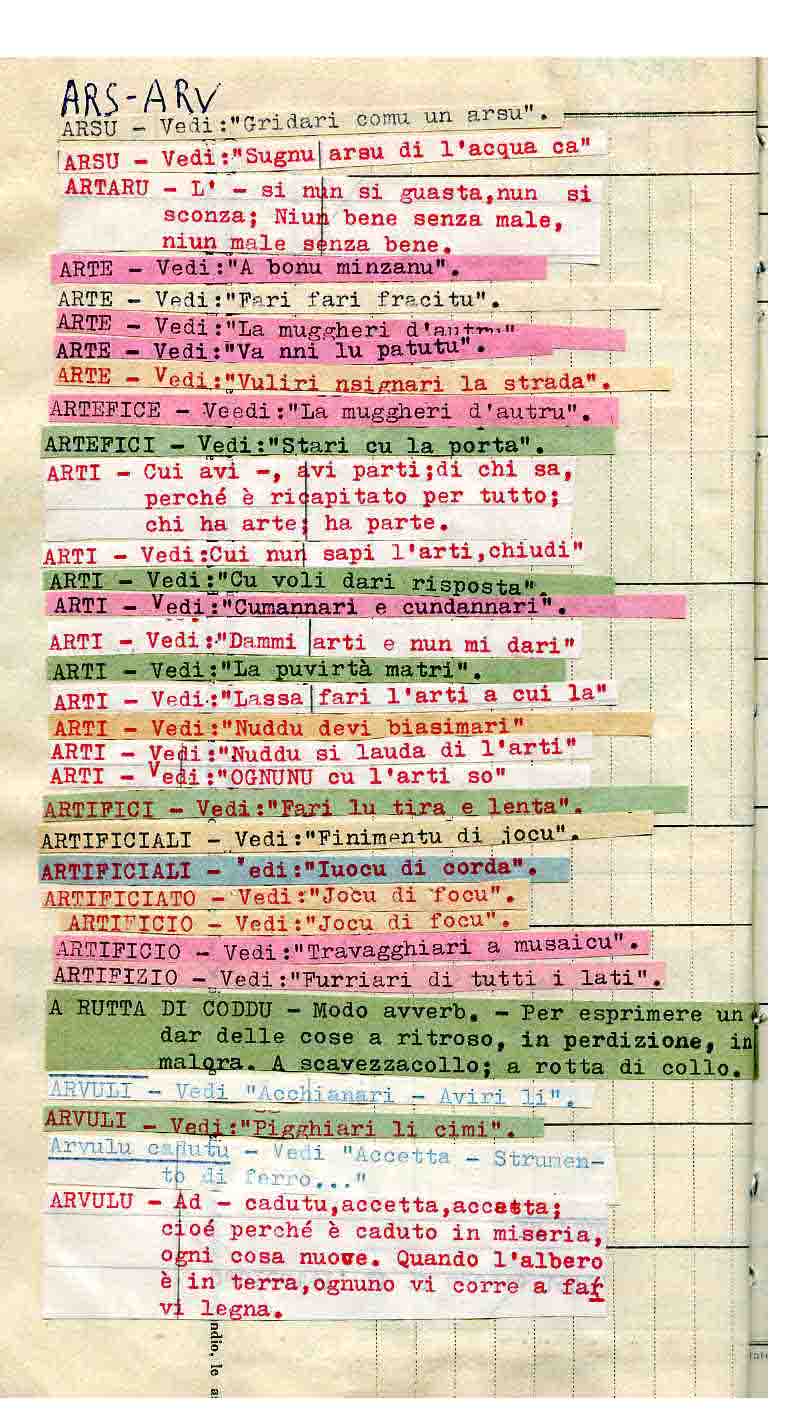 ARS-ARV
ARSU - Vedi:"Gridari comu un arsu".
ARSU - Vedi:"Sugnu arsu di l'acqua ca"
ARTARU - L' - si nun si guasta,nun si
sconza; Niun bene senza male,
niun male senza bene.
ARTE - Vedi:"A bonu minzanu".
ARTE - Vedi:"Fari fari fracitu".
ARTE - Vedi:"La muggheri d'autru"
ARTE - Vedi:"Va nni lu patutu".
ARTE - Vedi:"Vuliri nsignari la strada".
ARTEFICE - Veedi:"La muggheri d'autru".
ARTEFICI - Vedi:"Stari cu la porta".
ARTI - Cui avi -, avi parti;di chi sa,
perché è ricapitato per tutto;
chi ha arte; ha parte.
ARTI - Vedi:Cui nun sapi l'arti,chiudi"
ARTI - Vedi:"Cu voli dari risposta".
ARTI - Vedi:"Cumannari e cundannari".
ARTI - Vedi:"Dammi arti e nun mi dari"
ARTI - Vedi:"La puvirtà matri".
ARTI - Vedi:"Lassa fari l'arti a cui la"
ARTI - Vedi:"Nuddu devi biasimari"
ARTI - Vedi:"Nuddu si lauda di l'arti"
ARTI - Vedi:"OGNUNU cu l'arti so"
ARTIFICI - Vedi:"Fari lu tira e lenta".
ARTIFICIALI - Vedi:"Finimentu di jocu".
ARTIFICIALI - Vedi:"Iuocu di corda".
ARTIFICIATO - Vedi:"Jocu di focu".
ARTIFICIO - Vedi:"Jocu di focu".
ARTIFICIO - Vedi:"Travagghiari a musaicu".
ARTIFIZIO - Vedi:"Furriari di tutti i lati".
A RUTTA DI CODDU - Modo avverb. - Per esprimere un
dar delle cose a ritroso, in perdizione, in
malora. A scavezzacollo; a rotta di collo.
ARVULI - Vedi "Acchianari - Aviri li".
ARVULI - Vedi:"Pigghiari li cimi".
Arvulu cadutu - Vedi "Accetta - Strumen-
to di ferro..."
ARVULU - Ad - cadutu,accetta,accetta;
cioé perché è caduto in miseria,
ogni cosa nuoce. Quando l'albero
è in terra,ognuno vi corre a far
vi legna.
ndio, le a